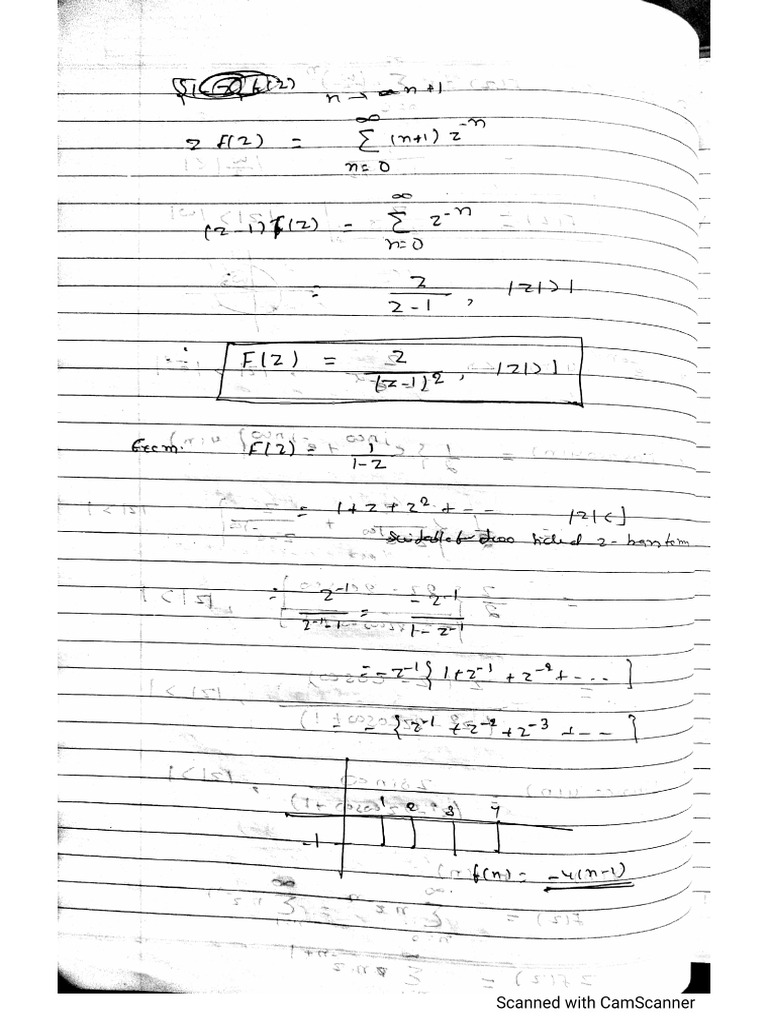 n → n+1
z F(z) = ∞ Σ n=0 (n+1) z^-n
(z-1) F(z) = ∞ Σ n=0 z^-n
= z / (z-1) , |z|>1
∴ F(z) = z / (z-1)^2 , |z|>1
Exam. F(z) = 1 / (1-z)
= 1 + z + z^2 + - - |z|<1
z-transform
= z^-1 / (z^-1 - 1) = - z^-1 / (1 - z^-1)
= - z^-1 { 1 + z^-1 + z^-2 + - - - }
= - { z^-1 + z^-2 + z^-3 + - - }
1 2 3 4
-1
f(n) = -u(n-1)
Scanned with CamScanner